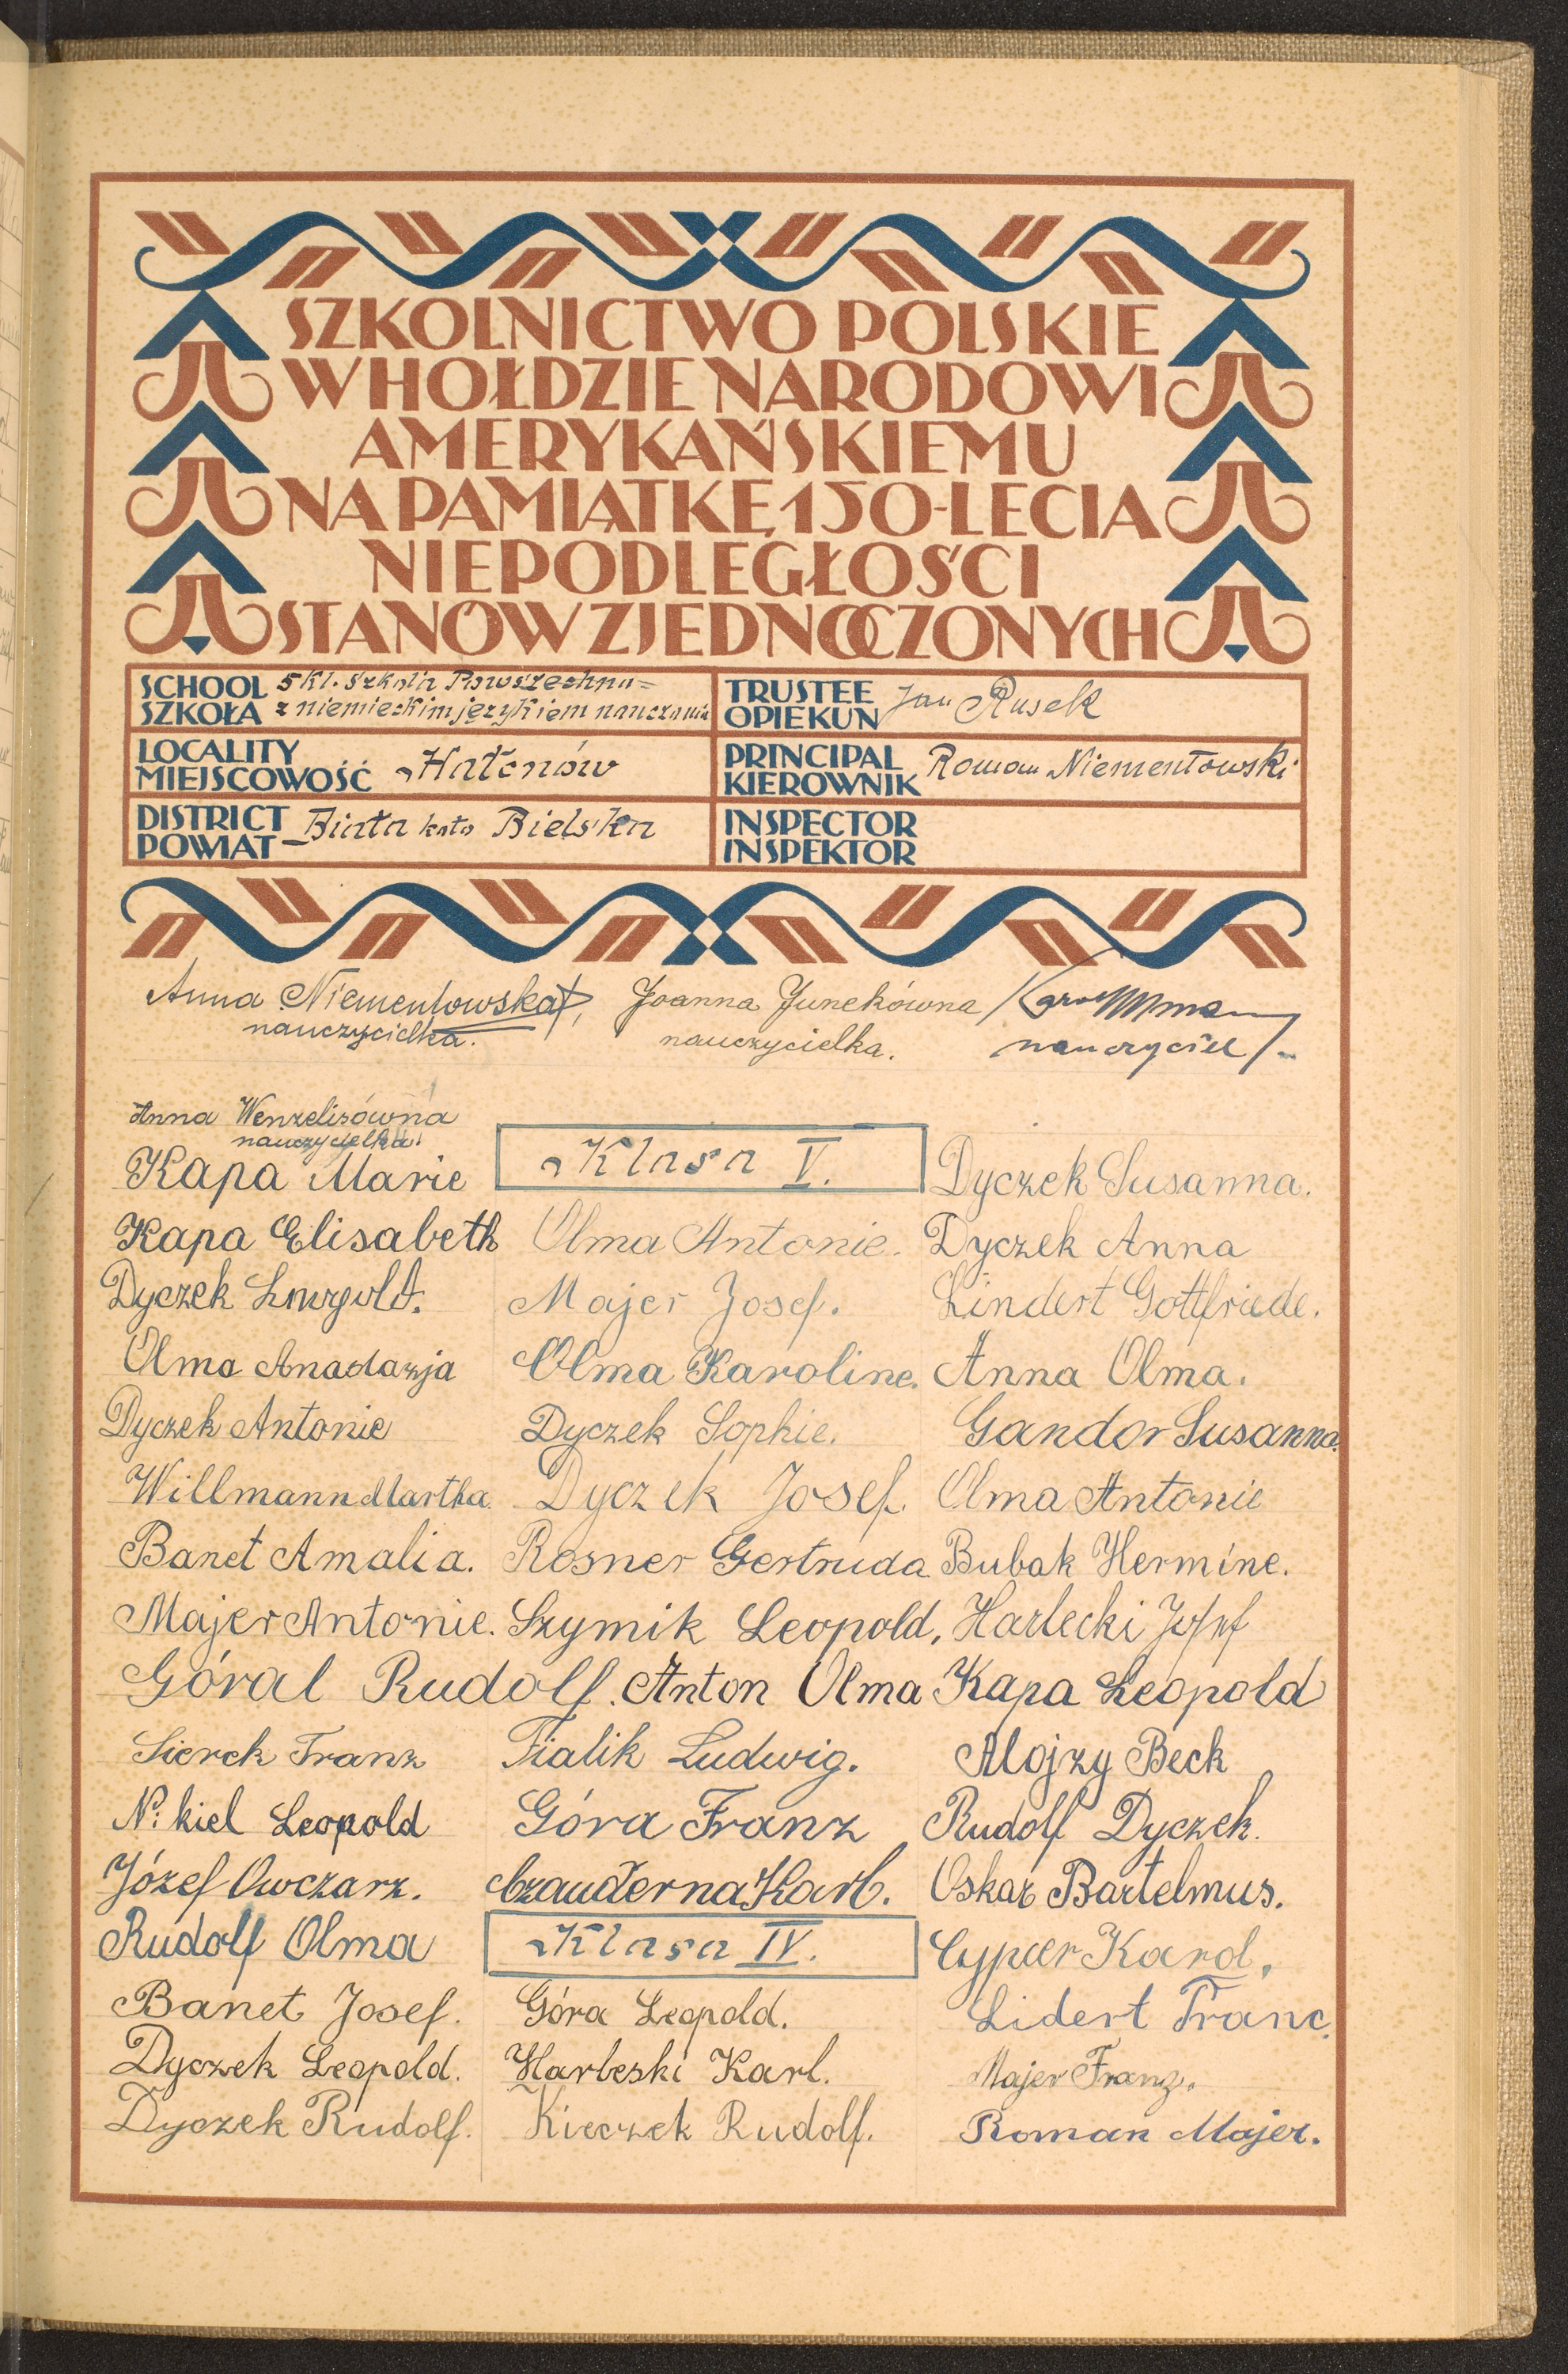 SZKOLNICTWO POLSKIE
W HOŁDZIE NARODOWI
AMERYKAŃSKIEMU
NA PAMIĄTKĘ 150-LECIA
NIEPODLEGŁOŚCI
STANÓW ZJEDNOCZONYCH
SCHOOL
SZKOŁA
5 kl. Szkoła Powszechna=
z niemieckim językiem nauczania
TRUSTEE
OPIEKUN
Jan Rusek
LOCALITY
MIEJSCOWOŚĆ
Hałcnów
PRINCIPAL
KIEROWNIK
Roman Niementowski
DISTRICT
POWIAT
Biała koło Bielska
INSPECTOR
INSPEKTOR
Anna Niementowska
nauczycielka.
Joanna Junekówna
nauczycielka.
Karol
nauczyciel
Anna Wenzelisówna
nauczycielka
Kapa Marie
Kapa Elisabeth
Dyczek
Olma
Dyczek Antonie
Willmann Martha.
Banet Amalia.
Majer Antonie.
Góral Rudolf.
Sierek Franz
Nikiel Leopold
Józef Owczarz.
Rudolf Olma
Banet Josef.
Dyczek Leopold.
Dyczek Rudolf.
Klasa V.
Olma Antonie.
Majer Josef.
Olma Karoline.
Dyczek Sophie.
Dyczek Josef.
Rosner Gertruda
Szymik Leopold,
Anton Olma
Fialik Ludwig.
Góra Franz
Czauderna Karl.
Klasa IV.
Góra Leopold.
Harleski Karl.
Kieczek Rudolf.
Dyczek Susanna.
Dyczek Anna
Lindert Gottfriede.
Anna Olma.
Gandor Susanna.
Olma Antonie
Bubak Hermine.
Harlecki Josef
Kapa Leopold
Alojzy Beck
Rudolf Dyczek.
Oskar Bartelmus.
Cypcer Karol.
Lidert Franc.
Majer Franz.
Roman Majer.